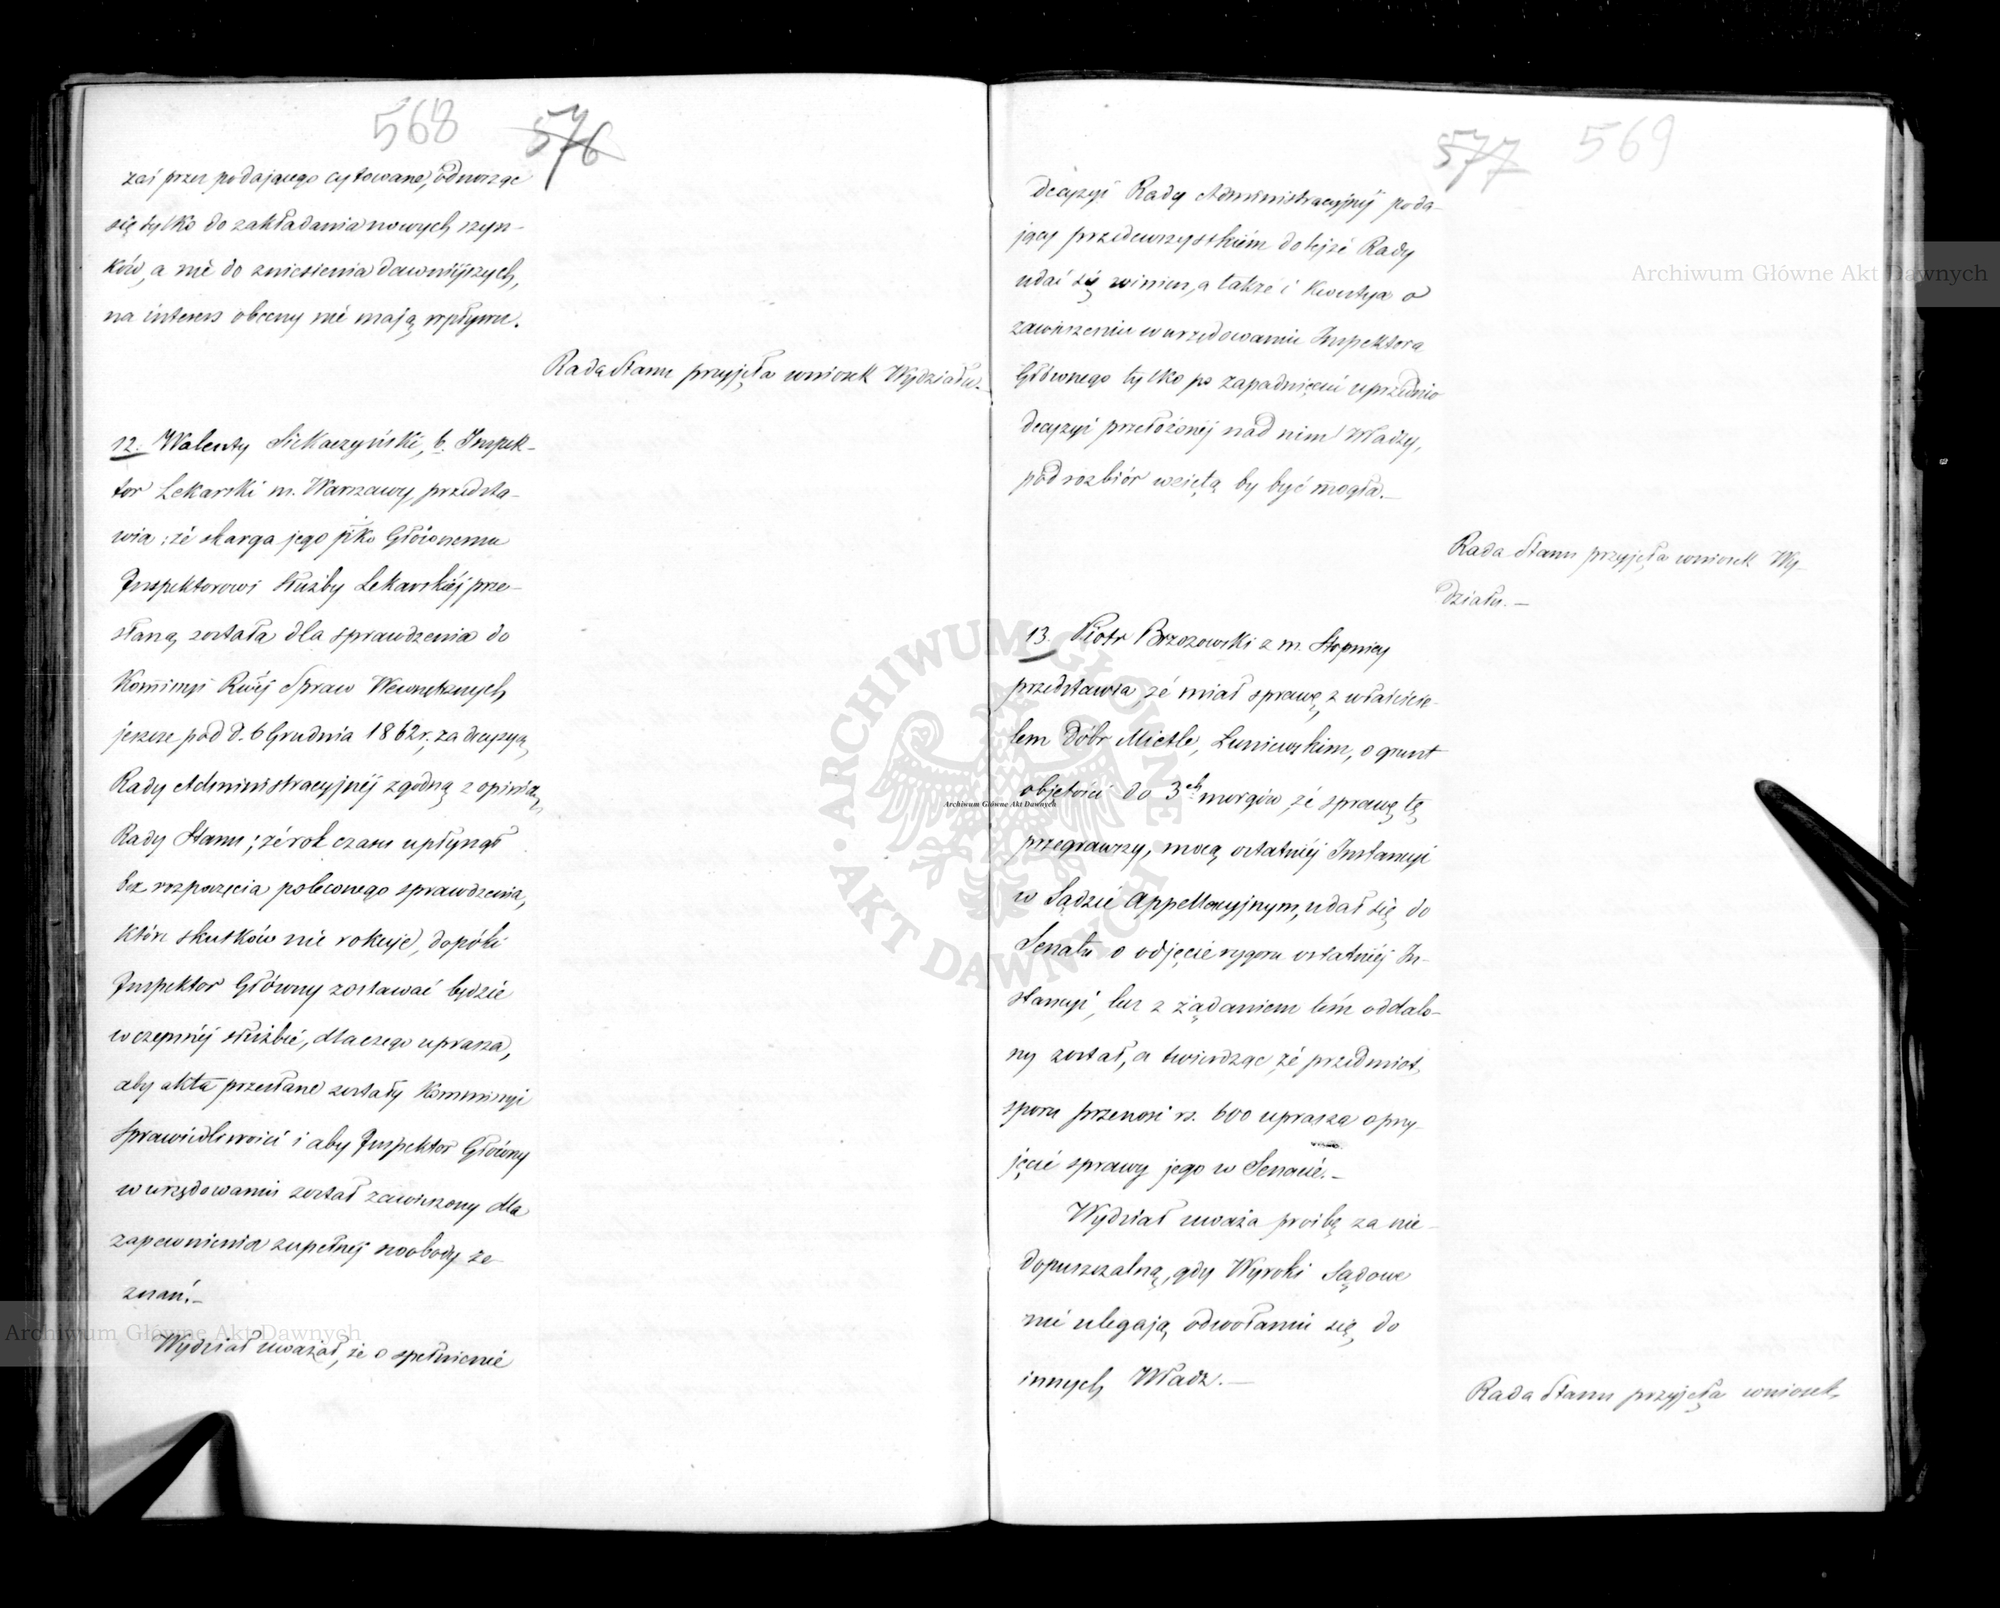 568 576
zaś przez podającego cytowane, odnosząc
się tylko do zakładania nowych szyn-
ków, a nie do zniesienia dawniejszych,
na interes obecny nie mają wpływu.
Rada Stanu przyjęła wniosek Wydziału.
12. Walenty Sikaczyński, b. Inspek-
tor Lekarski m. Warszawy, przedsta-
wia: że skarga jego jko Głównemu
Inspektorowi Służby Lekarskiéj prze-
słaną została dla sprawdzenia do
Kommisyi Rwéj Spraw Wewnętrznych
jeszcze pod d. 6 Grudnia 1862 r. za decyzyą
Rady Administracyjnéj zgodną z opinią
Rady Stanu; że rok czasu upłynął
bez rozpoczęcia poleconego sprawdzenia,
które skutków nie rokuje, dopóki
Inspektor Główny zostawać będzie
w czynnéj służbie, dla czego uprasza,
aby akta przesłane zostały Kommisyi
Sprawiedliwości i aby Inspektor Główny
w urzędowaniu został zawieszony dla
zapewnienia zupełnéj swobody ze-
znań.—
Wydział uważał, że o spełnienie
577 569
decyzyi Rady Administracyjnéj poda-
jący przedewszystkiém do tejże Rady
udać się winien, a także i kwestya o
zawieszeniu w urzędowaniu Inspektora
Głównego tylko po zapadnięciu uprzednio
decyzyi przełożonéj nad nim Władzy,
pod rozbiór wziętą by być mogła.—
Rada Stanu przyjęła wniosek Wy-
działu.—
13. Piotr Brzozowski z m. Stopnicy
przedstawia, że miał sprawę z właścicie-
lem dóbr Mietle, Łuniewskim, o grunt
objętości do 3ch morgów, że sprawę tę
przegrawszy, mocą ostatniéj Instancyi
w Sądzie Appellacyjnym, udał się do
Senatu o odjęcie rygoru ostatniéj In-
stancyi, lecz z żądaniem tém oddalo-
ny został, a twierdząc, że przedmiot
sporu przenosi rs. 600 uprasza o przy-
jęcie sprawy jego w Senacie.—
Wydział uważa prośbę za nie-
dopuszczalną, gdy Wyroki Sądowe
nie ulegają odwołaniu się do
innych Władz.—
Rada Stanu przyjęła wniosek
Archiwum Główne Akt Dawnych
Archiwum Główne Akt Dawnych
Archiwum Główne Akt Dawnych
ARCHIWUM GŁÓWNE AKT DAWNYCH